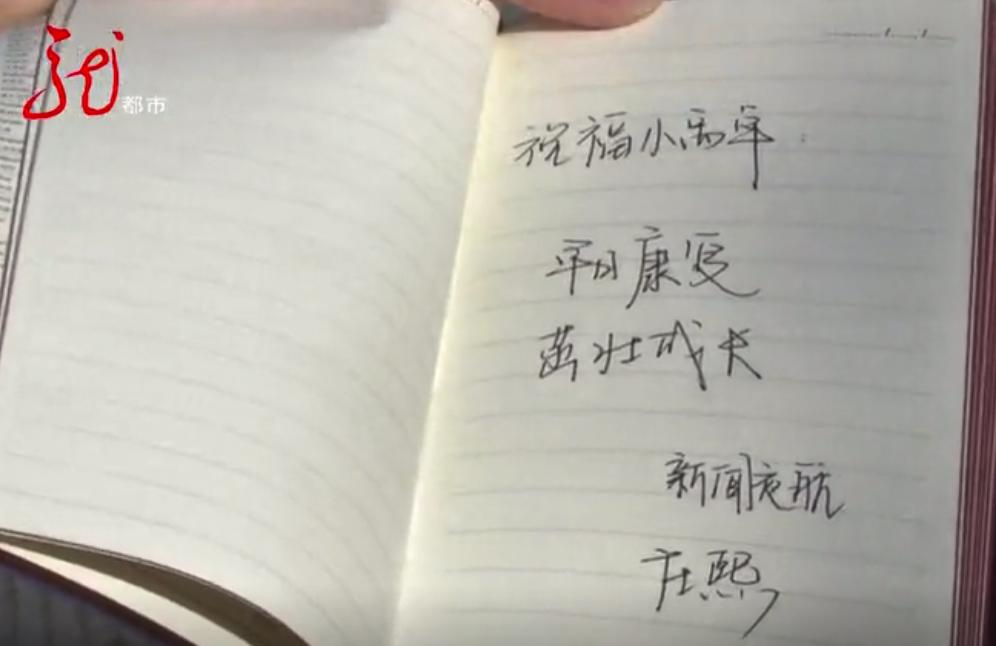 都市
祝福小
早日康复
茁壮成长
新闻夜航
庄熙